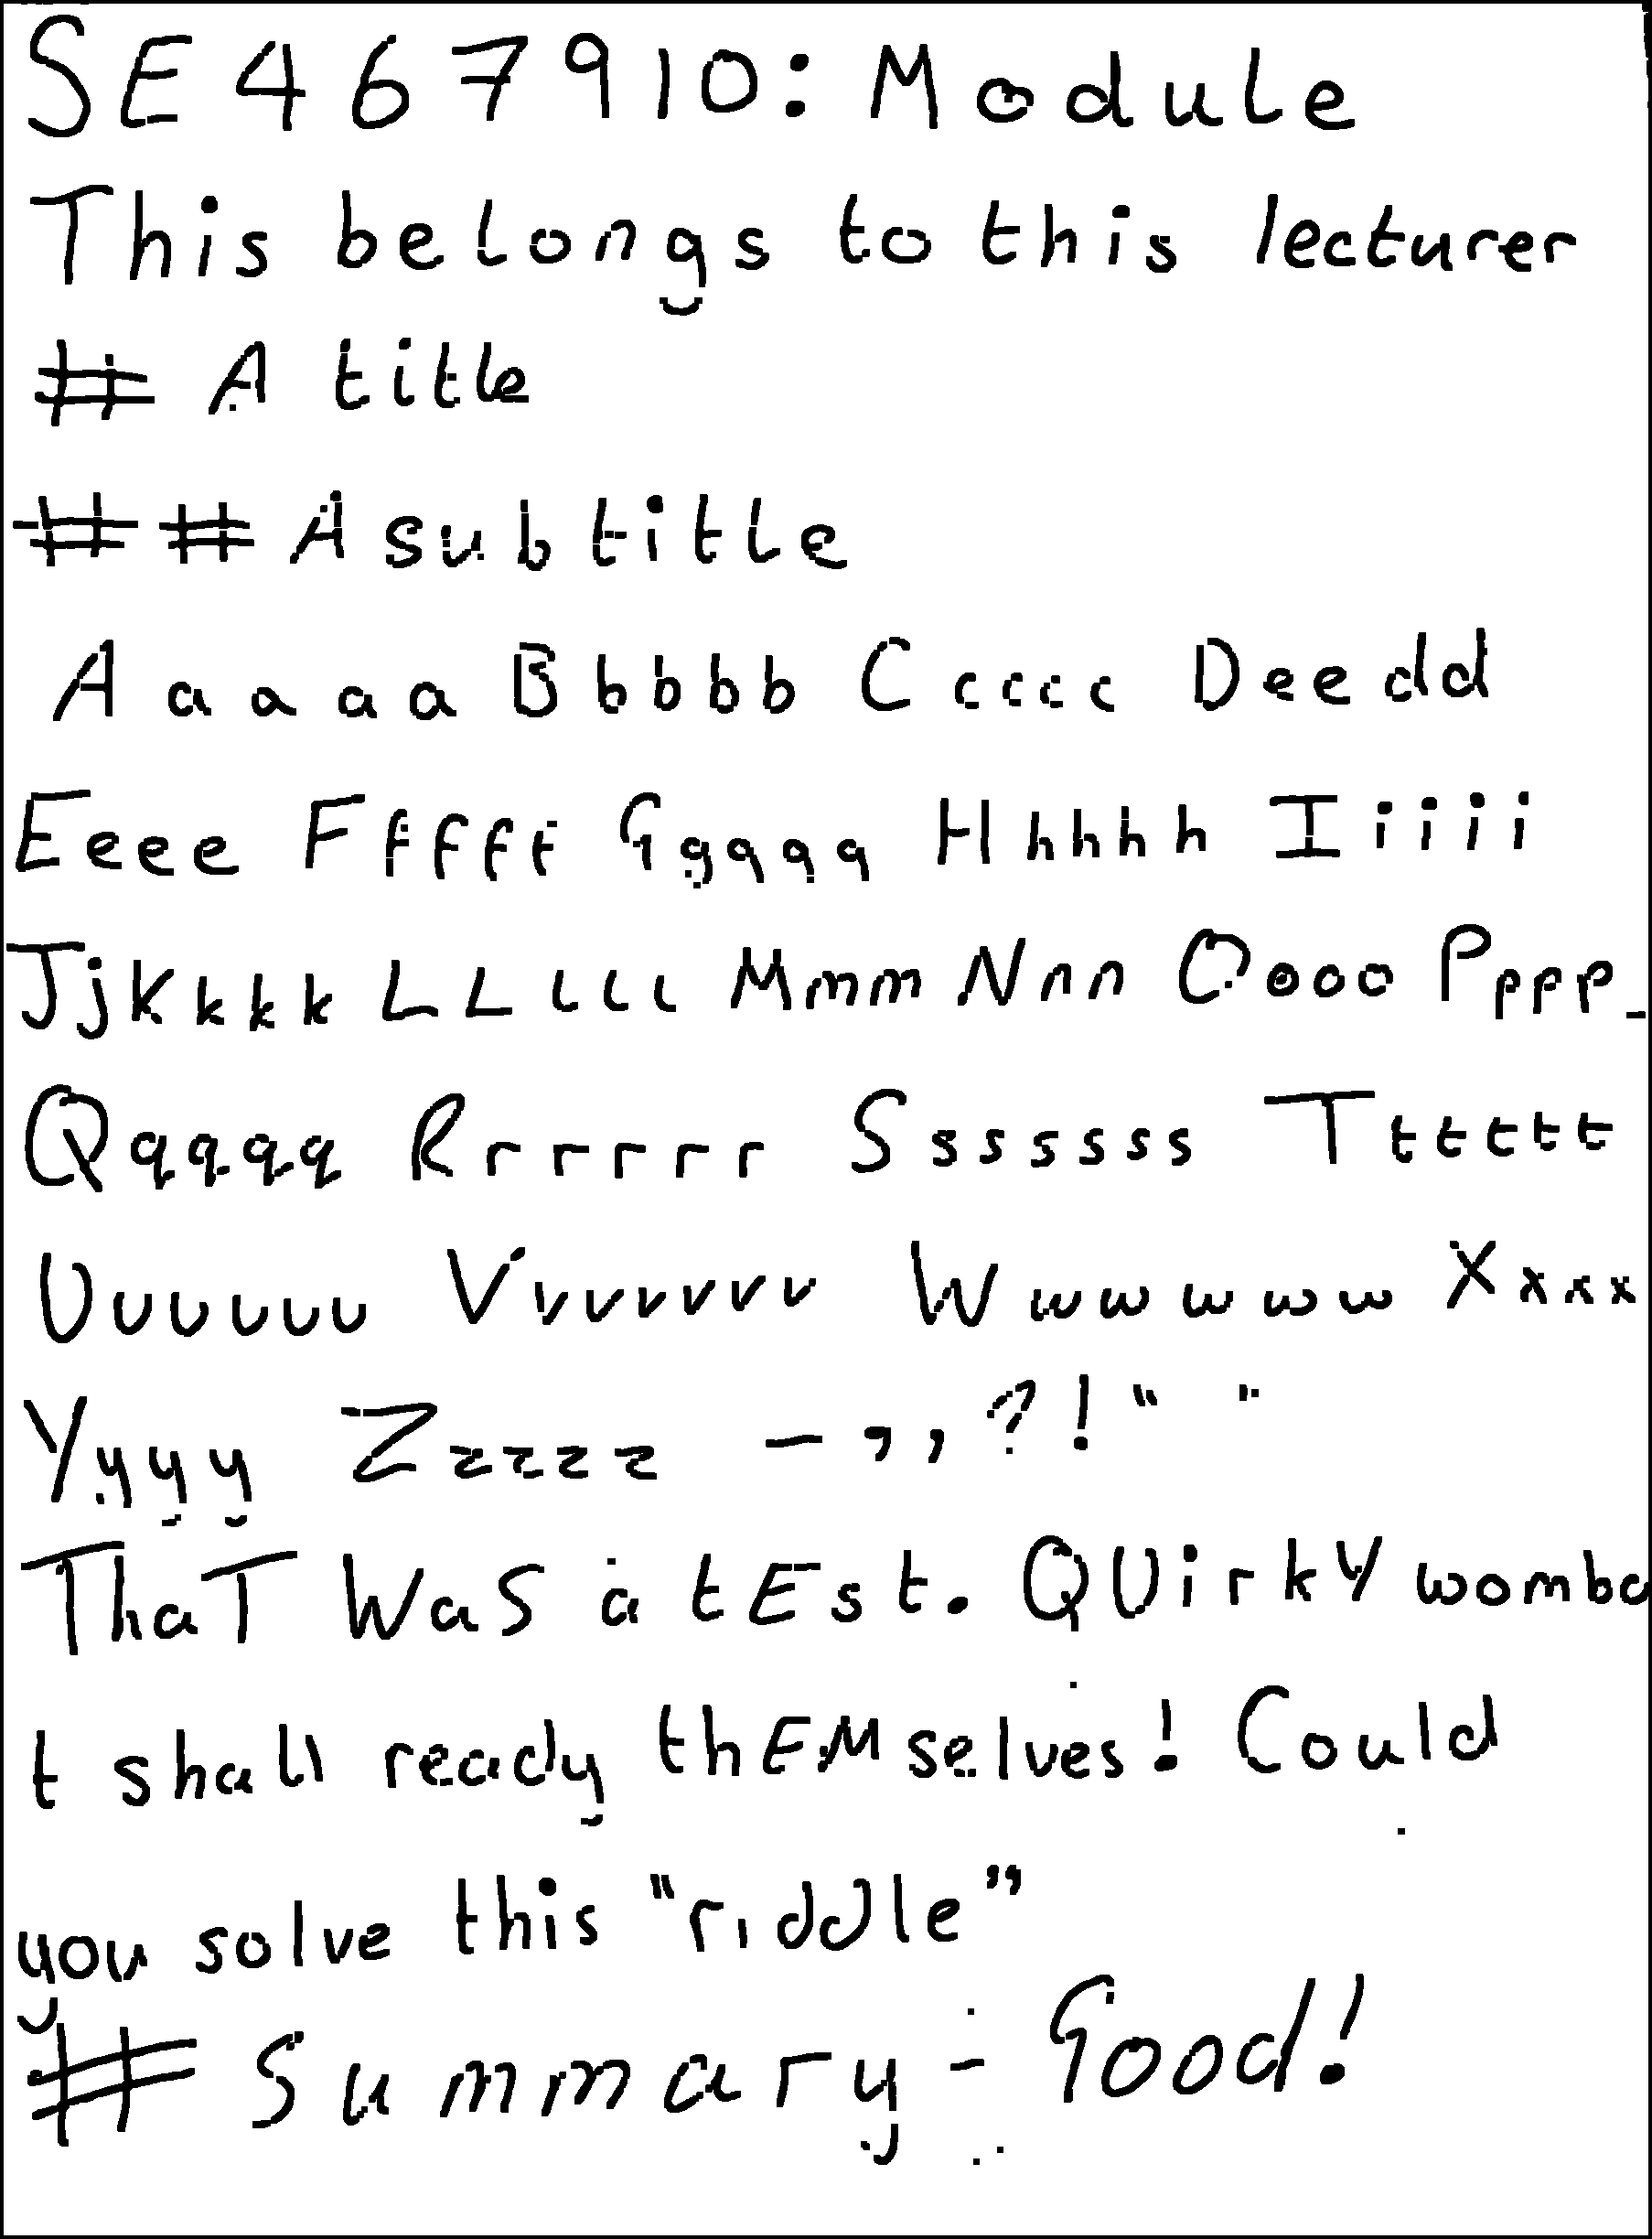 SE467910: Module
This belongs to this lecturer
# A title
## A subtitle
A a a a a B b b b b C c c c c D e e d d
E e e e F f f f f G g g g g H h h h h I i i i i
J j K k k k L L l l l M m m N n n O o o o P p p p -
Q q q q q R r r r r r S s s s s s s T t t t t t
U u u u u u V v v v v v v W w w w w w X x x x
Y y y y Z z z z z - , , ? ! “ "
ThaT WaS a tEst. QUirkY womba
t shall ready thEMselves! Could
you solve this “riddle”
# Summary - Good!